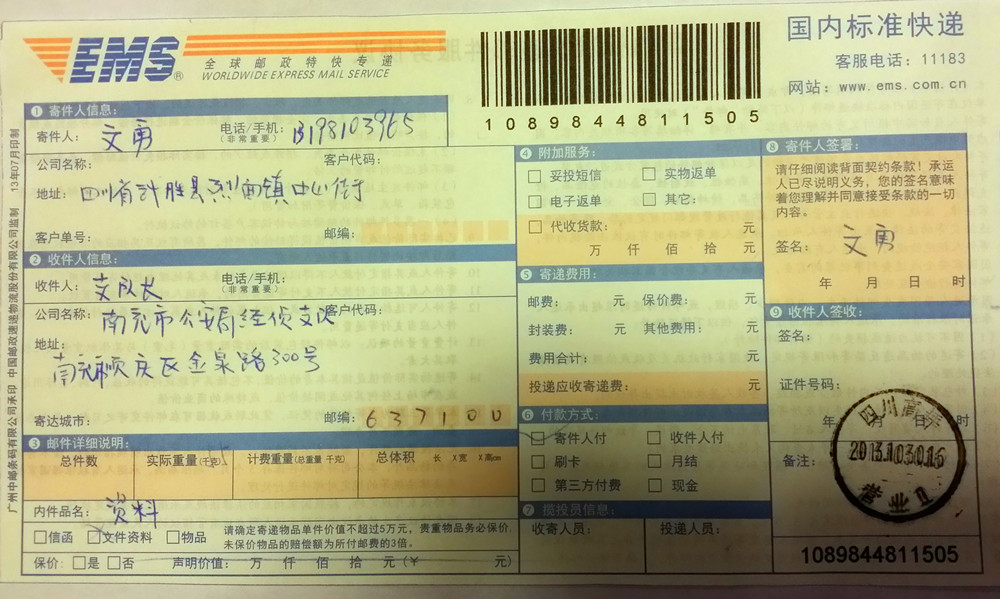 EMS®
全球邮政特快专递
WORLDWIDE EXPRESS MAIL SERVICE
1089844811505
国内标准快递
客服电话：11183
网站：www.ems.com.cn
广州中邮条码有限公司承印 中国邮政速递物流股份有限公司监制 13年07月印制
❶ 寄件人信息：
寄件人：文勇 电话/手机：（非常重要）
公司名称： 客户代码：
地址：四川省武胜县烈面镇中心街
客户单号： 邮编：
❷ 收件人信息：
收件人：支队长 电话/手机：（非常重要）
公司名称：南充市公安局经侦支队 客户代码：
地址：
南充市顺庆区金泉路300号
寄达城市： 邮编：637100
❸ 邮件详细说明：
总件数 实际重量（千克） 计费重量（总重量 千克） 总体积 长 X宽 X高cm
内件品名：资料
□信函 □文件资料 □物品
请确定寄递物品单件价值不超过5万元，贵重物品务必保价，
未保价物品的赔偿额为所付邮费的3倍。
保价：□是 □否 声明价值： 万 仟 佰 拾 元（￥ 元）
❹ 附加服务：
□ 妥投短信 □ 实物返单
□ 电子返单 □ 其它：
□ 代收货款： 元
万 仟 佰 拾 元
❺ 寄递费用：
邮费： 元 保价费： 元
封装费： 元 其他费用： 元
费用合计： 元
投递应收寄递费： 元
❻ 付款方式：
□ 寄件人付 □ 收件人付
□ 刷卡 □ 月结
□ 第三方付费 □ 现金
❼ 揽投员信息：
收寄人员： 投递人员：
❽ 寄件人签署：
请仔细阅读背面契约条款！承运
人已尽说明义务，您的签名意味
着您理解并同意接受条款的一切
内容。
签名：文勇
年 月 日 时
❾ 收件人签收：
签名：
证件号码：
年 月 日 时
备注：
四川
2013.10.30.16
营业
1089844811505